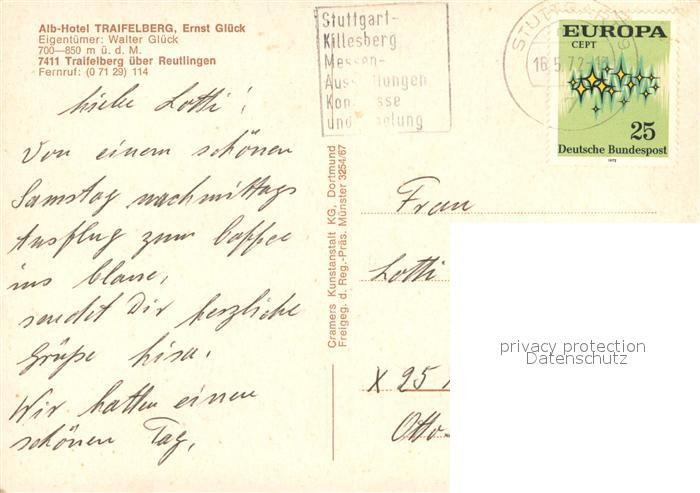 Alb-Hotel TRAIFELBERG, Ernst Glück
Eigentümer: Walter Glück
700–850 m ü. d. M.
7411 Traifelberg über Reutlingen
Fernruf: (0 71 29) 114
Liebe Lotti!
Von einem schönen
Samstag nachmittags
Ausflug zum Caffee
ins blaue,
sendet Dir herzliche
Grüße Lisa.
Wir hatten einen
schönen Tag.
Cramers Kunstanstalt KG, Dortmund
Freigeg. d. Reg.-Präs. Münster 3254/67
Stuttgart-
Killesberg
Messen-
und
STUTTGART
16.5.72
EUROPA
CEPT
25
Deutsche Bundespost
1972
Frau
Lotti
X 25
Otto-
privacy protection
Datenschutz